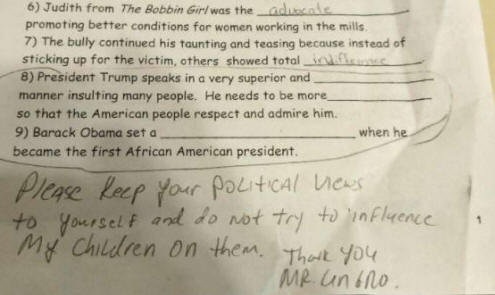 6) Judith from The Bobbin Girl was the advocate
promoting better conditions for women working in the mills.
7) The bully continued his taunting and teasing because instead of
sticking up for the victim, others showed total indifference.
8) President Trump speaks in a very superior and ____
manner insulting many people. He needs to be more____
so that the American people respect and admire him.
9) Barack Obama set a ____ when he
became the first African American president.
Please Keep your POLITICAL Views
to yourself and do not try to influence
My Children on them. Thank you
MR.